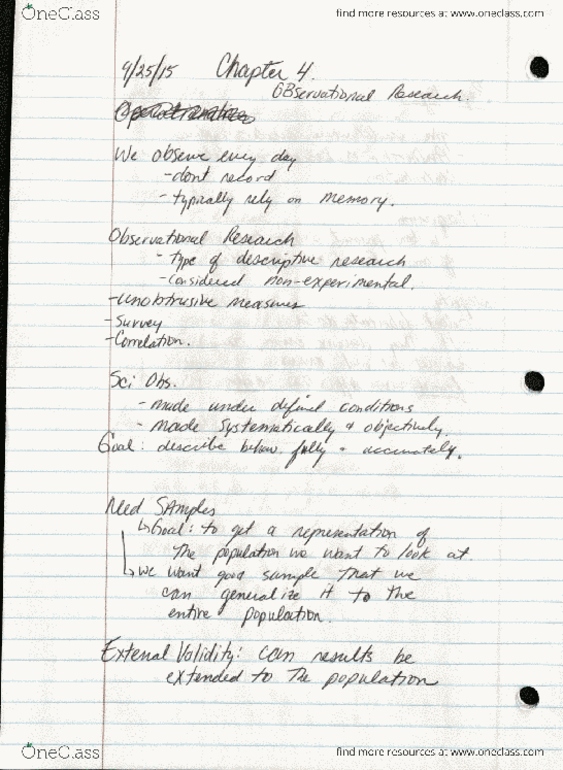 OneClass
find more resources at www.oneclass.com
9/25/15 Chapter 4.
OBservational Research.
We observe every day
-dont record
-typically rely on memory.
Observational Research
-type of descriptive research
-considered non-experimental.
-unobtrusive measures
-Survey
-Correlation.
Sci Obs.
-made under defined conditions
-made systematically + objectively.
Goal: describe behav. fully + accurately.
Need SAmples
↳Goal: to get a representation of
the population we want to look at
↳we want good sample that we
can generalize it to the
entire population.
External Validity: can results be
extended to the population
OneClass
find more resources at www.oneclass.com